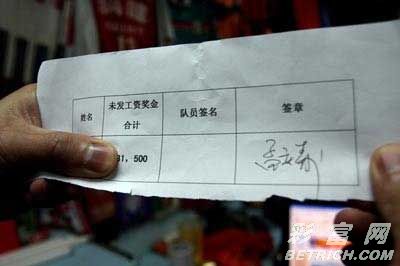 姓名 未发工资奖金 队员签名 签章
合计
31，500
彩富网
BETRICH.COM